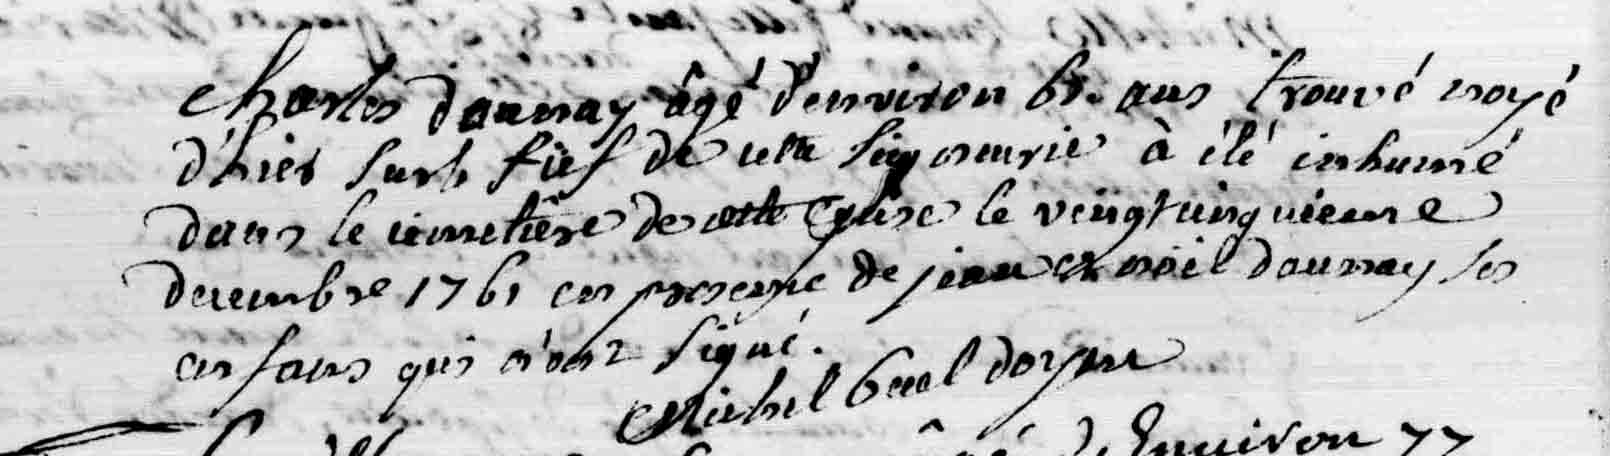 charles daunay âgé d'environ 61. ans trouvé noyé
d'hier sur le fief de cette signeurie à été inhumé
dans le cimetiere de cette Eglise le vingtcinquieme
decembre 1761 en presence de jean et noël daunay ses
enfans qui n'ont signé.
Michel doyen
âgé d'Environ 77